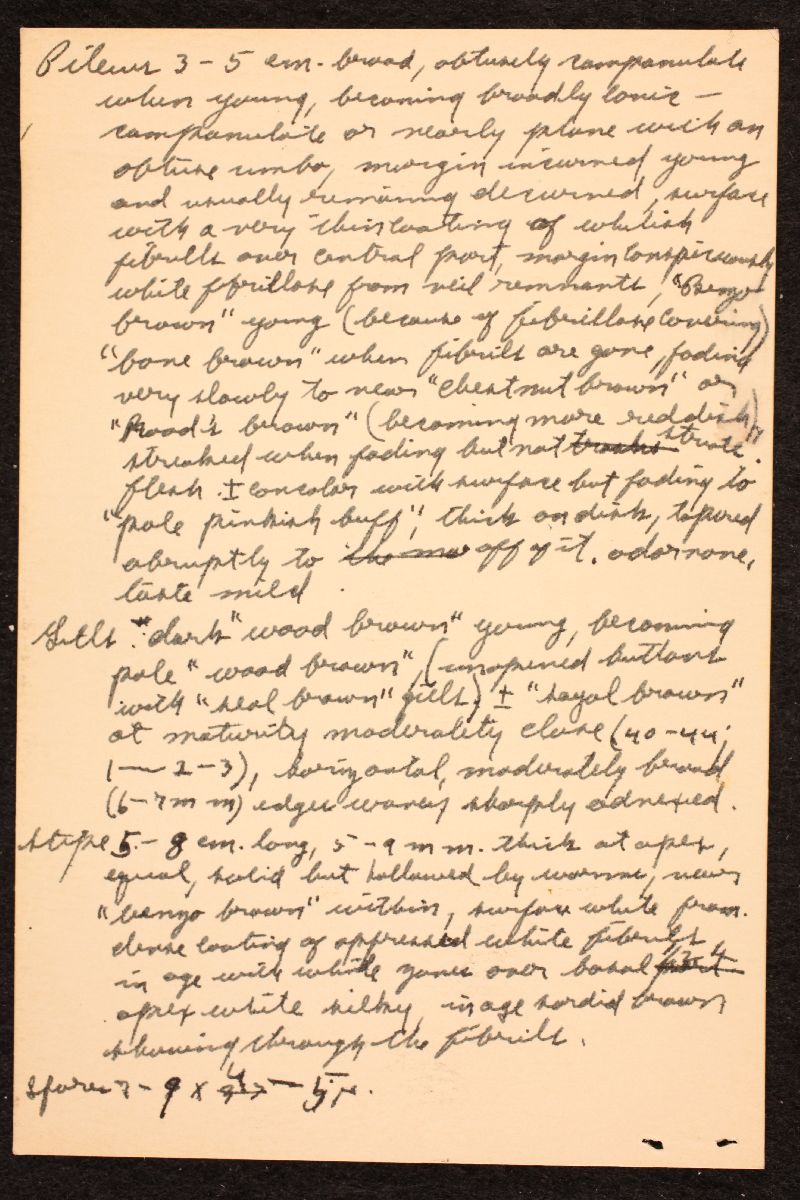 Pileus 3 - 5 cm. broad, obtusely campanulate
when young, becoming broadly conic -
campanulate or nearly plane with an
obtuse umbo, margin incurved young
and usually remaining decurved, surface
with a very thin coating of whitish
fibrils over central part, margin conspicuously
white fibrillose from veil remnants, "Benzo
brown" young (because of fibrillose covering)
"bone brown" when fibrils are gone, fading
very slowly to near "chestnut brown" or
"Rood's brown" (becoming more reddish),
streaked when fading but not striate.
flesh ± concolor with surface but fading to
"pale pinkish buff", thick on disk, tapered
abruptly to off of it. odor none,
taste mild.
Gills "dark" wood brown" young, becoming
pale "wood brown", (unopened buttons
with "seal brown" gills) ± "sayal brown"
at maturity moderately close (40-44;
1 — 2-3), horizontal, moderately broad
(6-7 m m) edges wavy sharply adnexed.
stipe 5 - 8 cm. long, 5 - 9 m m. thick at apex,
equal, solid but hollowed by worms, near
"benzo brown" within, surface white from
dense coating of appressed white fibrils,
in age with white zones over basal 3/4
apex white silky, in age sordid brown
showing through the fibrils.
spores 7 - 9 x 4 — 5 µ.